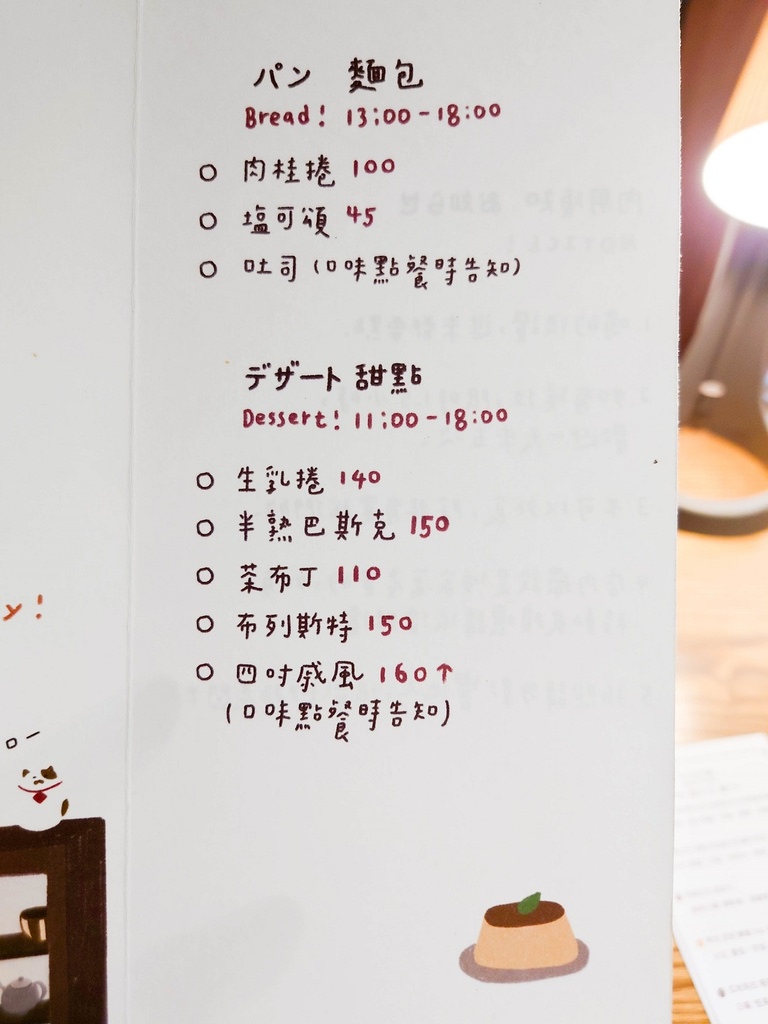 パン 麵包
Bread! 13:00-18:00
○ 肉桂捲 100
○ 塩可頌 45
○ 吐司 (口味點餐時告知)
デザート 甜點
Dessert! 11:00-18:00
○ 生乳捲 140
○ 半熟巴斯克 150
○ 茶布丁 110
○ 布列斯特 150
○ 四吋戚風 160↑
(口味點餐時告知)
y!